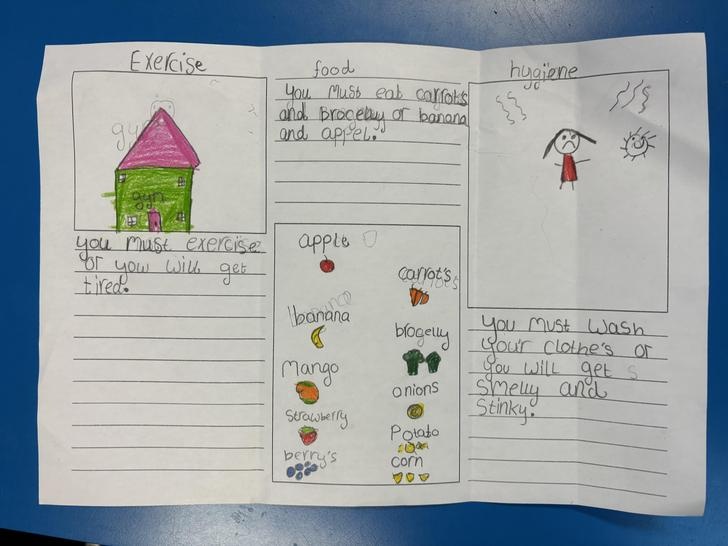 Exercise
gym
gym
you must exercise
or you will get
tired.
food
You Must eat carrots
and Brogelly or banana
and appel.
apple
carrot's
banana
brogelly
Mango
onions
Strawberry
Potato
berry's
corn
hygiene
You Must Wash
your clothe's or
you will get s
Smelly and
Stinky.